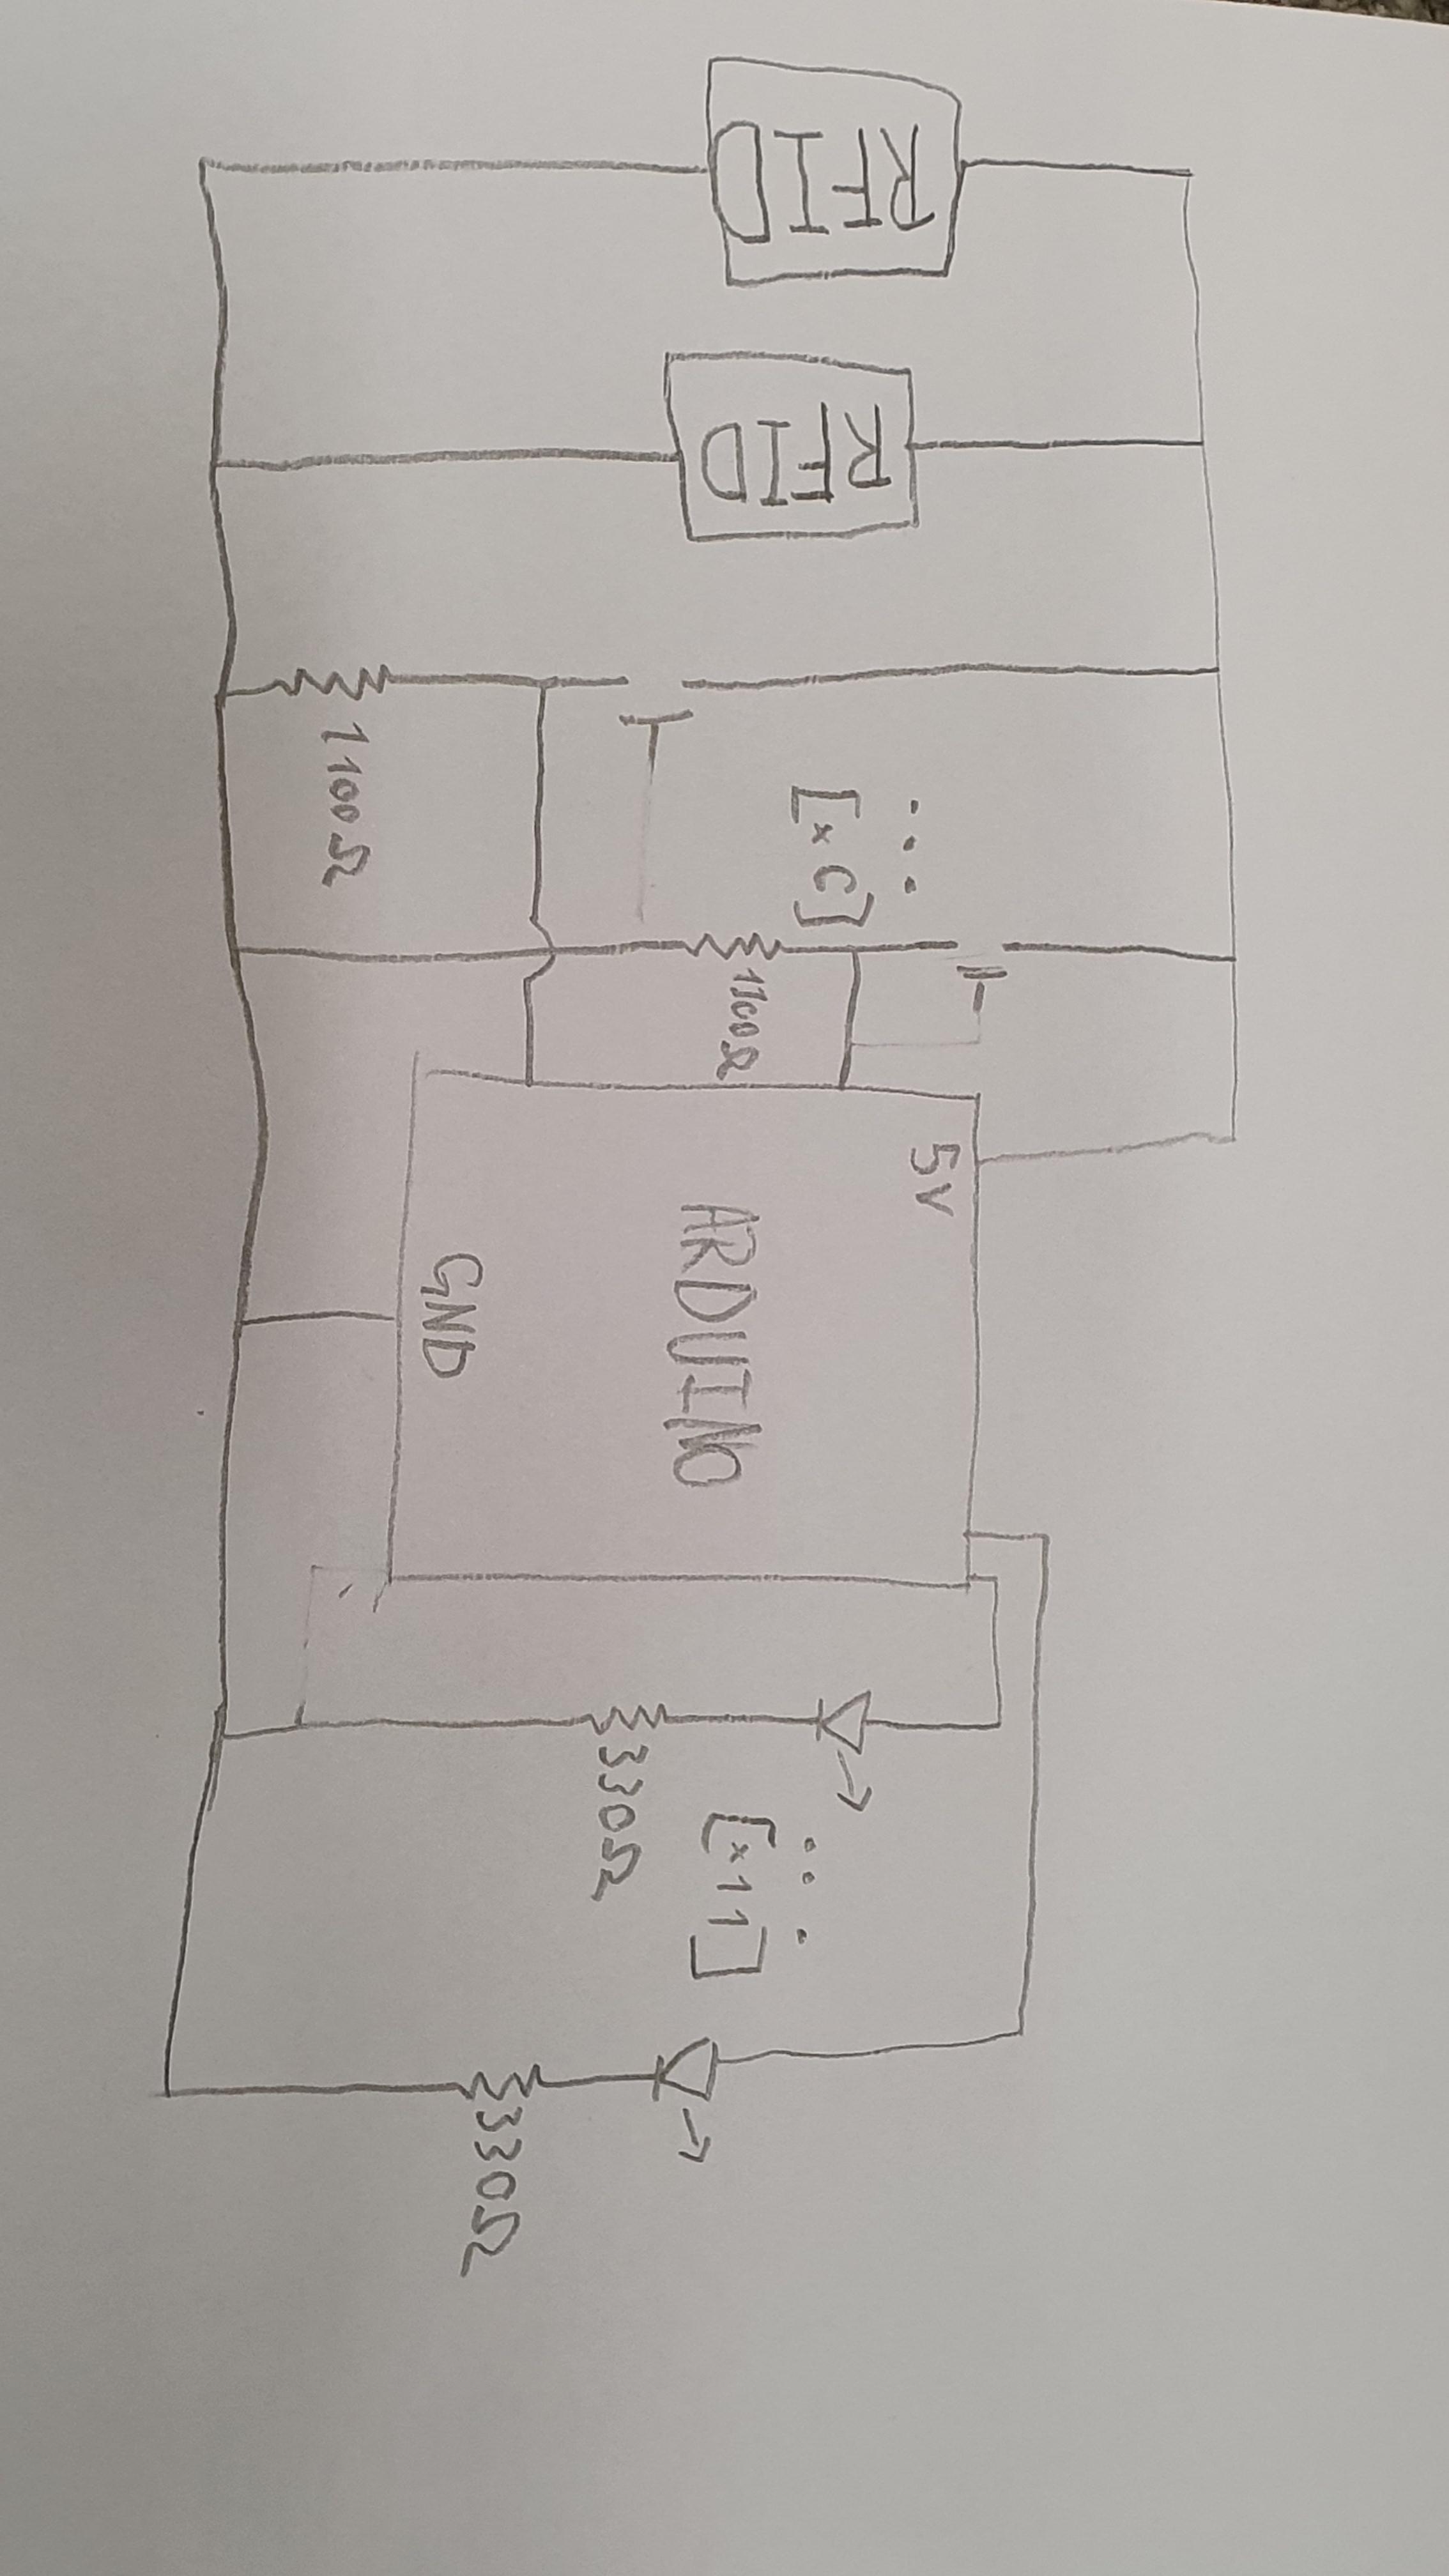 RFID
RFID
1100Ω
[x C]
1100Ω
5V
ARDUINO
GND
330Ω
[x11]
330Ω